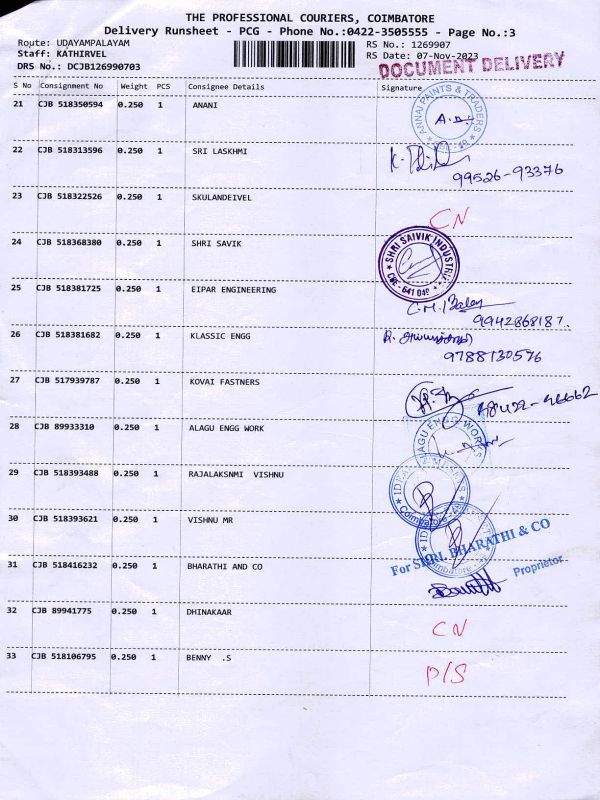 THE PROFESSIONAL COURIERS, COIMBATORE
Delivery Runsheet - PCG - Phone No.:0422-3505555 - Page No.:3
Route: UDAYAMPALAYAM RS No.: 1269907
Staff: KATHIRVEL RS Date: 07-Nov-2023
DRS No.: DCJB126990703 DOCUMENT DELIVERY
S No Consignment No Weight PCS Consignee Details Signature
21 CJB 518350594 0.250 1 ANANI
ANNAI PAINTS & TRADERS
22 CJB 518313596 0.250 1 SRI LASKHMI
99526-93376
23 CJB 518322526 0.250 1 SKULANDEIVEL
CN
24 CJB 518368380 0.250 1 SHRI SAVIK
SHRI SAIVIK INDUSTRI
CBE - 641 049
25 CJB 518381725 0.250 1 EIPAR ENGINEERING
9942868187.
26 CJB 518381682 0.250 1 KLASSIC ENGG
9788130576
27 CJB 517939787 0.250 1 KOVAI FASTNERS
28 CJB 89933310 0.250 1 ALAGU ENGG WORK
ALAGU ENGG WORKS
29 CJB 518393488 0.250 1 RAJALAKSNMI VISHNU
Coimbatore
30 CJB 518393621 0.250 1 VISHNU MR
Coimbatore
31 CJB 518416232 0.250 1 BHARATHI AND CO
For SHRI. BHARATHI & CO
Proprietor
32 CJB 89941775 0.250 1 DHINAKAAR
CN
33 CJB 518106795 0.250 1 BENNY .S
D/S